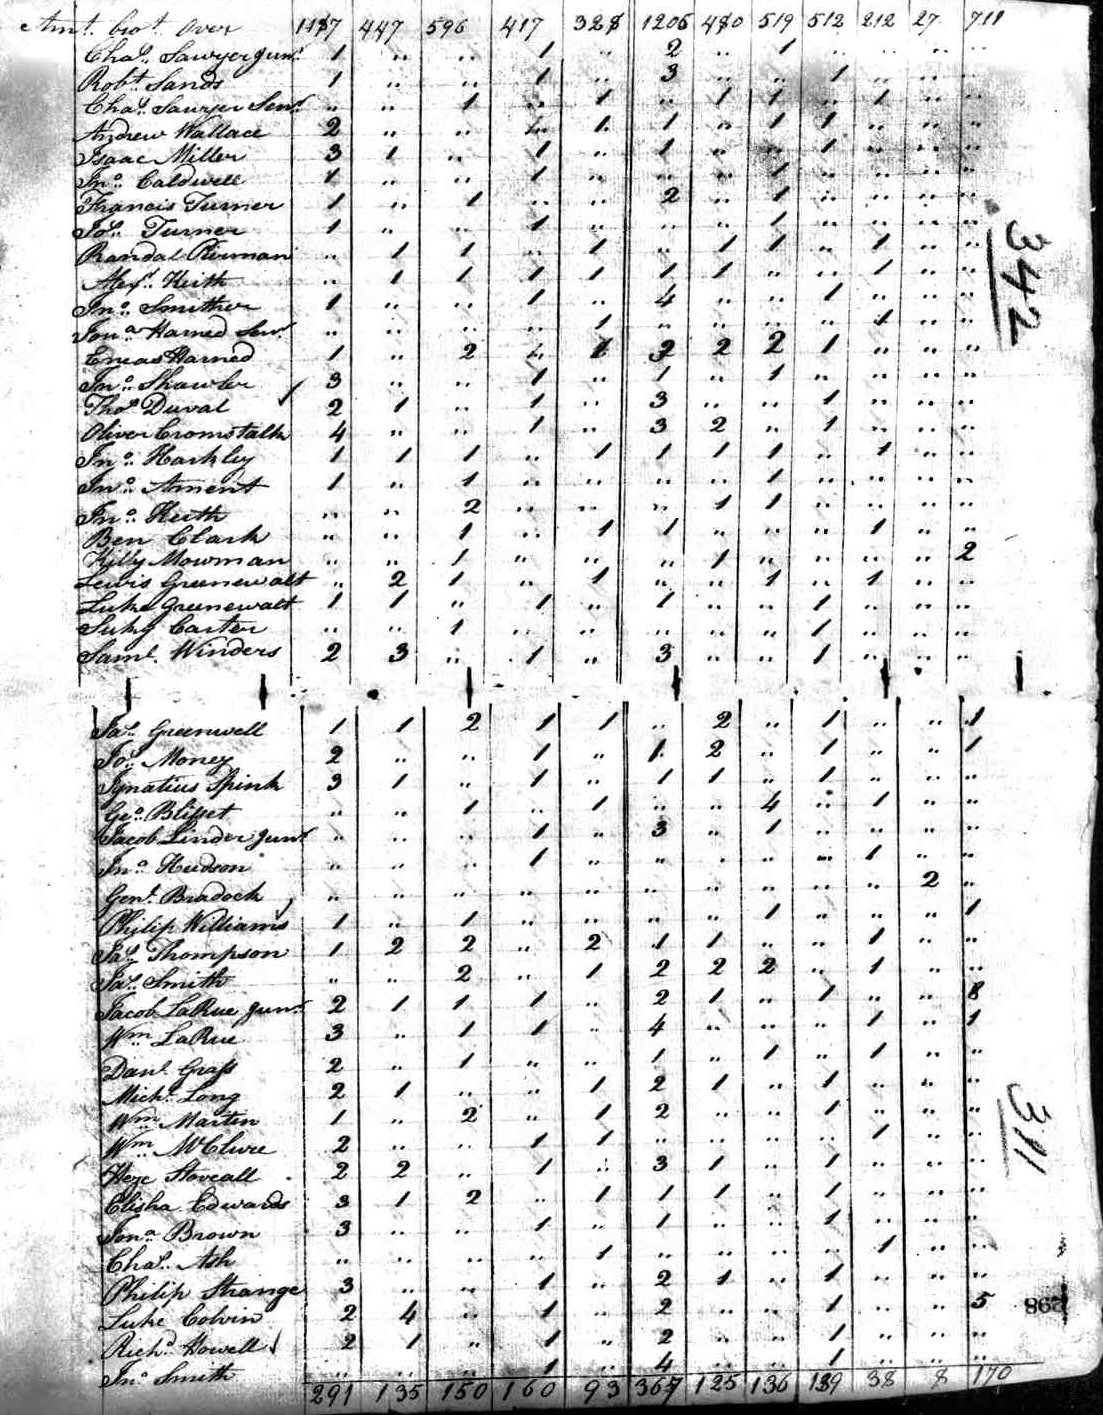 Amt. brot. Over 1187 447 596 417 328 1206 480 519 512 212 27 711
Chas. Sawyer Junr. 1 .. .. 1 .. 2 .. 1 .. .. .. ..
Robt. Sands 1 .. .. 1 .. 3 .. .. 1 .. .. ..
Chas. Sawyer Senr. .. .. 1 .. 1 .. 1 1 .. 1 .. ..
Andrew Wallace 2 .. .. .. 1 1 .. 1 1 .. .. ..
Isaac Miller 3 1 .. 1 .. 1 .. .. 1 .. .. ..
Jno. Caldwell 1 .. .. 1 .. .. .. 1 .. .. .. ..
Francis Turner 1 .. 1 .. .. 2 .. 1 .. .. .. ..
Jos. Turner 1 .. .. 1 .. .. .. 1 .. .. .. ..
Randal .. 1 1 .. 1 .. 1 1 .. 1 .. ..
Alexr. Keith .. 1 1 1 1 1 1 .. .. 1 .. ..
Jno. Smither 1 .. .. 1 .. 4 .. .. 1 .. .. ..
Jona. Harned Senr. .. .. .. .. 1 .. .. .. .. 1 .. ..
Eneas Harned 1 .. 2 .. 1 2 2 2 1 .. .. ..
Jno. Shawler 3 .. .. 1 .. 1 .. 1 .. .. .. ..
Thos. Duval 2 1 .. 1 .. 3 .. .. 1 .. .. ..
Oliver Cromstalk 4 .. .. 1 .. 3 2 .. 1 .. .. ..
Jno. Harkley 1 1 1 .. 1 1 1 1 .. 1 .. ..
Jno. Ament 1 .. 1 .. .. .. .. 1 .. .. .. ..
Jno. Keith .. .. 2 .. .. .. 1 1 .. .. .. ..
Ben Clark .. .. 1 .. 1 1 .. .. .. 1 .. ..
Killy Mowman .. .. 1 .. .. .. 1 .. .. .. .. 2
Lewis Greenewalt .. 2 1 .. 1 .. .. 1 .. 1 .. ..
Luke Greenewalt 1 1 .. 1 .. 1 .. .. 1 .. .. ..
Suky Carter .. .. 1 .. .. .. .. .. 1 .. .. ..
Saml. Winders 2 3 .. 1 .. 3 .. .. 1 .. .. ..
342
Jas. Greenwell 1 1 2 1 1 .. 2 .. 1 .. .. 1
Jos. Money 2 .. .. 1 .. 1 2 .. 1 .. .. 1
Ignatius Spink 3 1 .. 1 .. 1 1 .. 1 .. .. ..
Geo. Blisset .. .. 1 .. 1 .. .. 4 .. 1 .. ..
Jacob Linder Junr. .. .. .. 1 .. 3 .. 1 .. .. .. ..
Jno. Hudson .. .. .. 1 .. .. .. .. .. 1 .. ..
Genl. Bradock .. .. .. .. .. .. .. .. .. .. 2 ..
Philip Williams 1 .. 1 .. .. .. .. 1 .. .. .. 1
Jas. Thompson 1 2 2 .. 2 1 1 .. .. 1 .. ..
Jas. Smith .. .. 2 .. 1 2 2 2 .. 1 .. ..
Jacob LaRue Junr. 2 1 1 1 .. 2 1 .. 1 .. .. 8
Wm. LaRue 3 .. 1 1 .. 4 .. .. .. 1 .. 1
Danl. Grass 2 .. 1 .. .. 1 .. 1 .. 1 .. ..
Michl. Long 2 1 .. .. 1 2 1 .. 1 .. .. ..
Wm. Martin 1 .. 2 .. 1 2 .. .. 1 .. .. ..
Wm. McClure 2 .. .. 1 1 .. .. .. .. 1 .. ..
Heze Stoveall 2 2 .. 1 .. 3 1 .. 1 .. .. ..
Elisha Edwards 3 1 2 .. 1 1 1 .. 1 .. .. ..
Jona. Brown 3 .. .. 1 .. 1 .. .. 1 .. .. ..
Chas. Ash .. .. .. .. 1 .. .. .. .. 1 .. ..
Philip Strange 3 .. .. 1 .. 2 1 .. 1 .. .. ..
Luke Colvin 2 4 .. 1 .. 2 .. .. 1 .. .. 5
Richd. Howell 2 1 .. 1 .. 2 .. .. 1 .. .. ..
Jno. Smith .. .. .. 1 .. 4 .. .. 1 .. .. ..
291 135 150 160 93 367 125 136 139 38 8 170
311
298